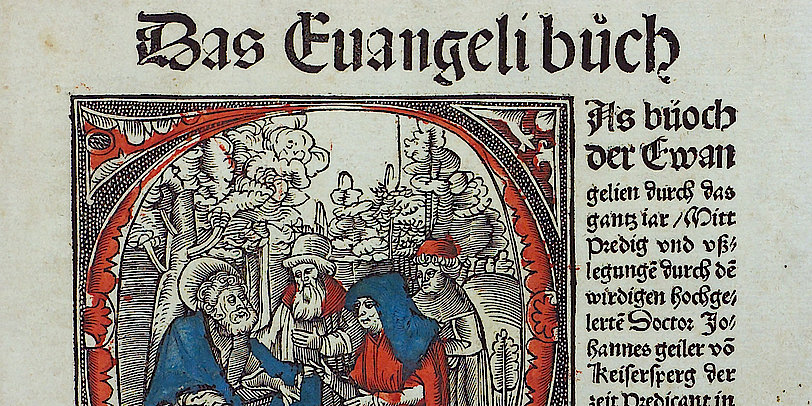 Das Euangeli bůch
As bůoch
der Ewan
gelien durch das
gantz iar / Mitt
Predig vnd vß⸗
legungē durch dē
wirdigen hochge⸗
lertē Doctor Jo⸗
hannes geiler vō
Keisersperg der
zeit Predicant in